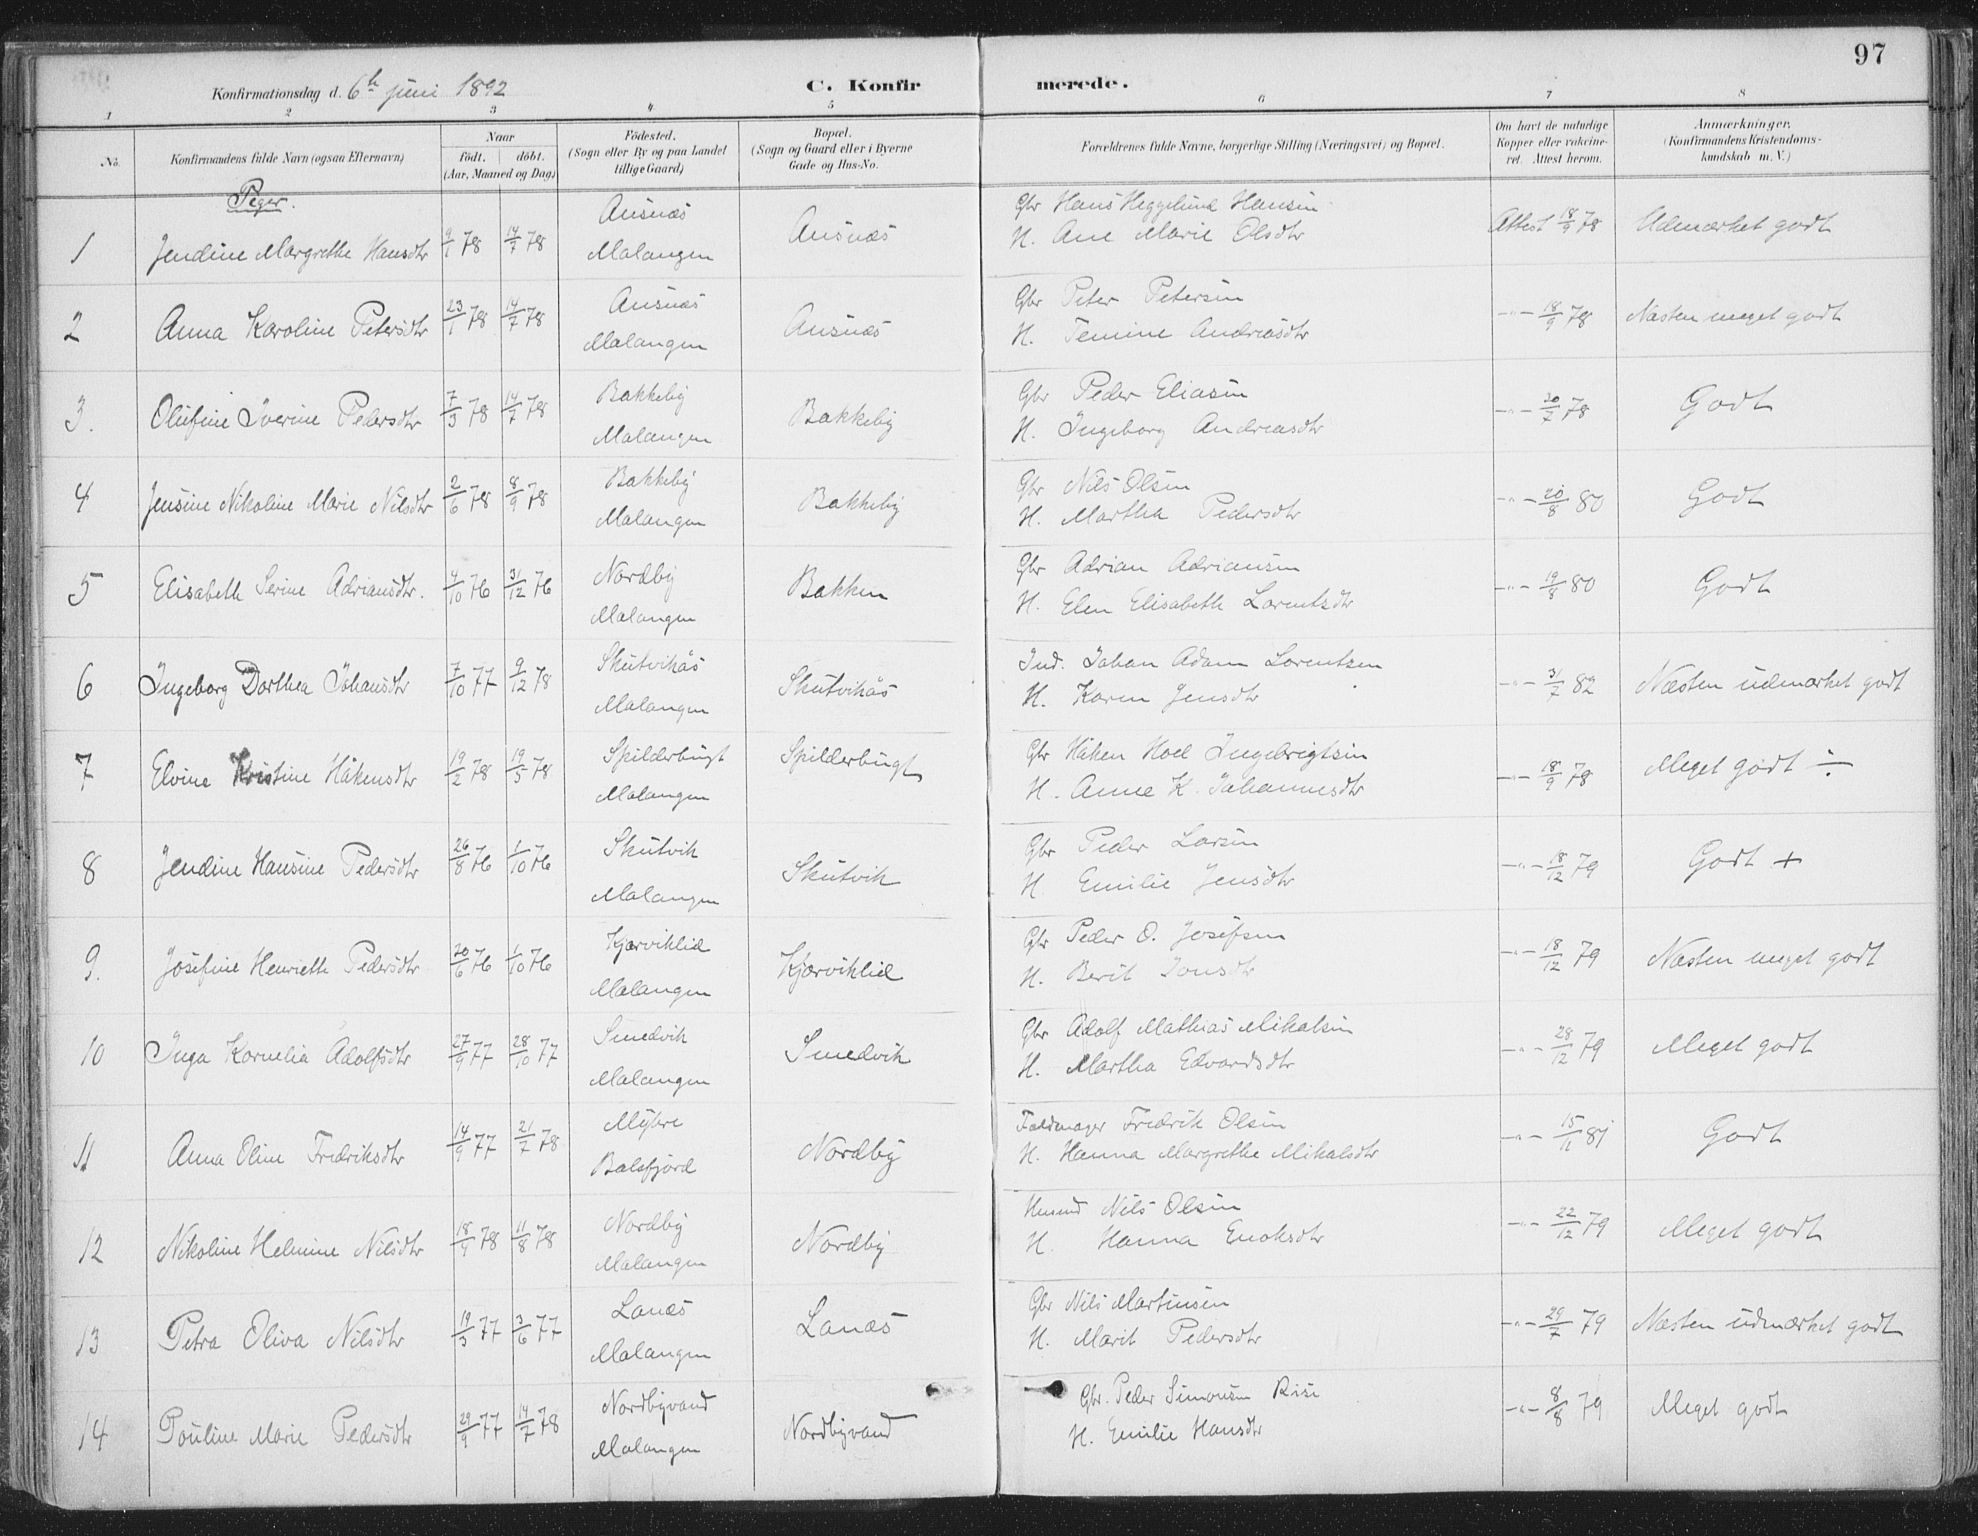 97
Konfirmationsdag d. 6h juni 1892
C. Konfirmerede.
1 2 3 4 5 6 7 8
No. | Konfirmandens fulde Navn (ogsaa Efternavn) | Naar födt. döbt. (Aar, Maaned og Dag) | Födested. (Sogn eller By og paa Landet tillige Gaard) | Bopæl. (Sogn og Gaard eller i Byerne Gade og Hus-No. | Forældrenes fulde Navne, borgerlige Stilling (Næringsvei) og Bopæl. | Om havt de naturlige Kopper eller vakcineret. Attest herom. | Anmærkninger. (Konfirmandens Kristendomskundskab m. V.)
Piger.
1 Jendine Margrethe Hansdtr 9/1 78 14/7 78 Ansnæs Malangen Ansnæs Gbr Hans Heggelund Hansen H. Ane Marie Olsdtr Attest 18/9 78 Udmærket godt
2 Anna Karoline Petersdtr 23/1 78 14/7 78 Ansnæs Malangen Ansnæs Gbr Peter Petersen H. Temine Andreasdtr -"- 18/9 78 Næsten meget godt
3. Olufine Iverine Pedersdtr 7/3 78 14/7 78 Bakkeby Malangen Bakkeby Gbr Peder Eliasen H. Ingeborg Andreasdtr -"- 20/7 78 Godt
4 Jensine Nikoline Marie Nilsdtr 2/6 78 8/9 78 Bakkeby Malangen Bakkeby Gbr Nils Olsen H. Martha Pedersdtr -"- 20/8 80 Godt
5 Elisabeth Serine Adriansdtr. 4/10 76 31/12 76 Nordby Malangen Bakken Gbr Adrian Adriansen H. Elen Elisabeth Lorentsdtr -"- 19/8 80 Godt
6 Ingeborg Dorthea Johansdtr 7/10 77 9/12 78 Skutvikås Malangen Skutvikås Ind. Johan Adam Lorentsen H. Karen Jensdtr -"- 31/7 82 Næsten udmærket godt
7 Elvine Kristine Håkensdtr 19/2 78 19/5 78 Spilderbugt Malangen Spilderbugt Gbr Håken Hoel Ingebrigtsen H. Anne K. Johannesdtr -"- 18/9 78 Meget godt ÷
8 Jendine Hansine Pedersdtr 26/8 76 1/10 76 Skutvik Malangen Skutvik Gbr Peder Larsen H. Emilie Jensdtr -"- 18/12 79 Godt +
9. Josefine Henriette Pedersdtr 20/6 76 1/10 76 Kjærviklied Malangen Kjærviklied Gbr Peder O. Josefsen H. Berit Jonsdtr -"- 18/12 79 Næsten meget godt
10 Inga Kornelia Adolfsdtr 27/9 77 28/10 77 Smedvik Malangen Smedvik Gbr Adolf Mathias Mikalsen H. Martha Edvardsdtr -"- 28/12 79 Meget godt
11 Anna Oline Fredriksdtr 14/9 77 21/7 78 Myhre Balsfjord Nordby Fredrik Olsen H. Hanna Margrethe Mikalsdtr -"- 15/11 81 Godt
12 Nikoline Helmine Nilsdtr 18/4 78 11/8 78 Nordby Malangen Nordby Husmd Nils Olsen H. Hanna Enoksdtr -"- 22/12 79 Meget godt
13 Petra Oliva Nilsdtr 19/3 77 3/6 77 Lanæs Malangen Lanæs Gbr Nils Martinsen H. Marit Pedersdtr -"- 29/7 79 Næsten udmærket godt
14 Pouline Marie Pedersdtr 29/9 77 14/7 78 Nordbyvand Malangen Nordbyvand Gbr. Peder Simonsen Risi H. Emilie Hansdtr -"- 8/8 79 Meget godt